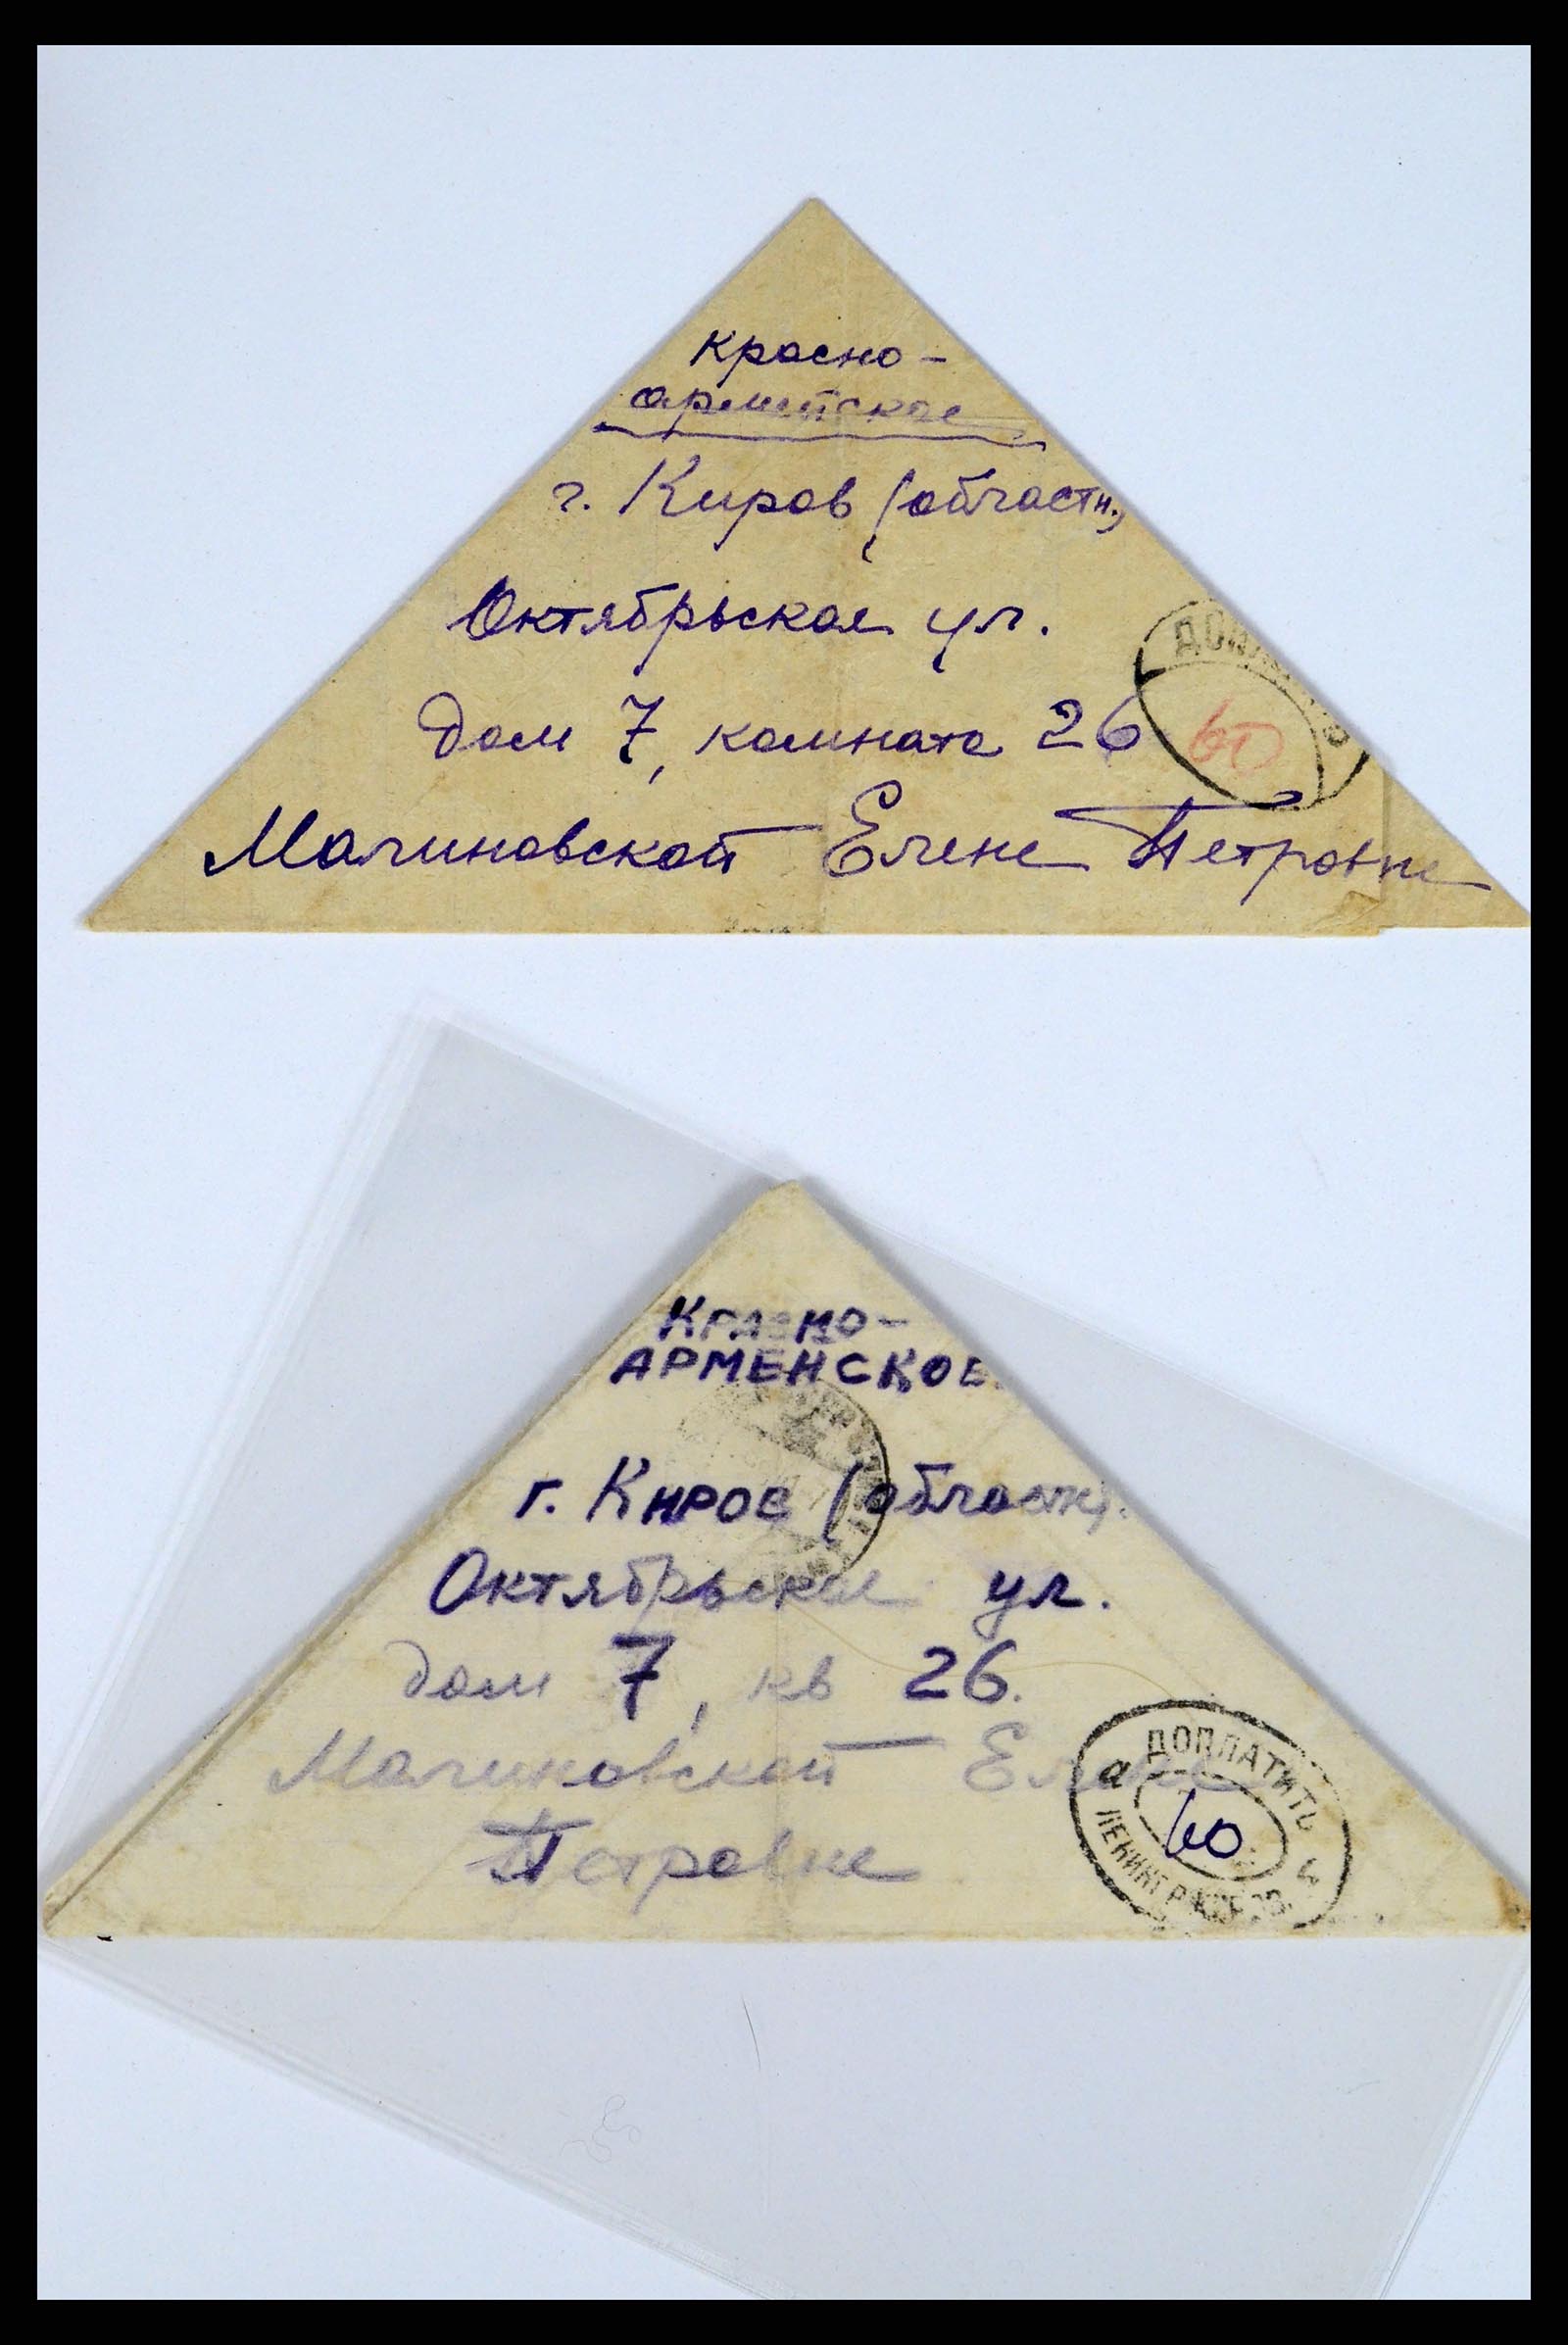 Красно-
армейское
г. Киров (областн.)
Октябрьская ул.
дом 7, комната 26
Малиновской Елене Петровне
60
КРАСНО-
АРМЕЙСКОЕ.
г. Киров (областн).
Октябрьская ул.
дом 7, кв 26.
Малиновской Елене
Петровне
ДОПЛАТИТЬ
а
60
ЛЕНИНГРАД